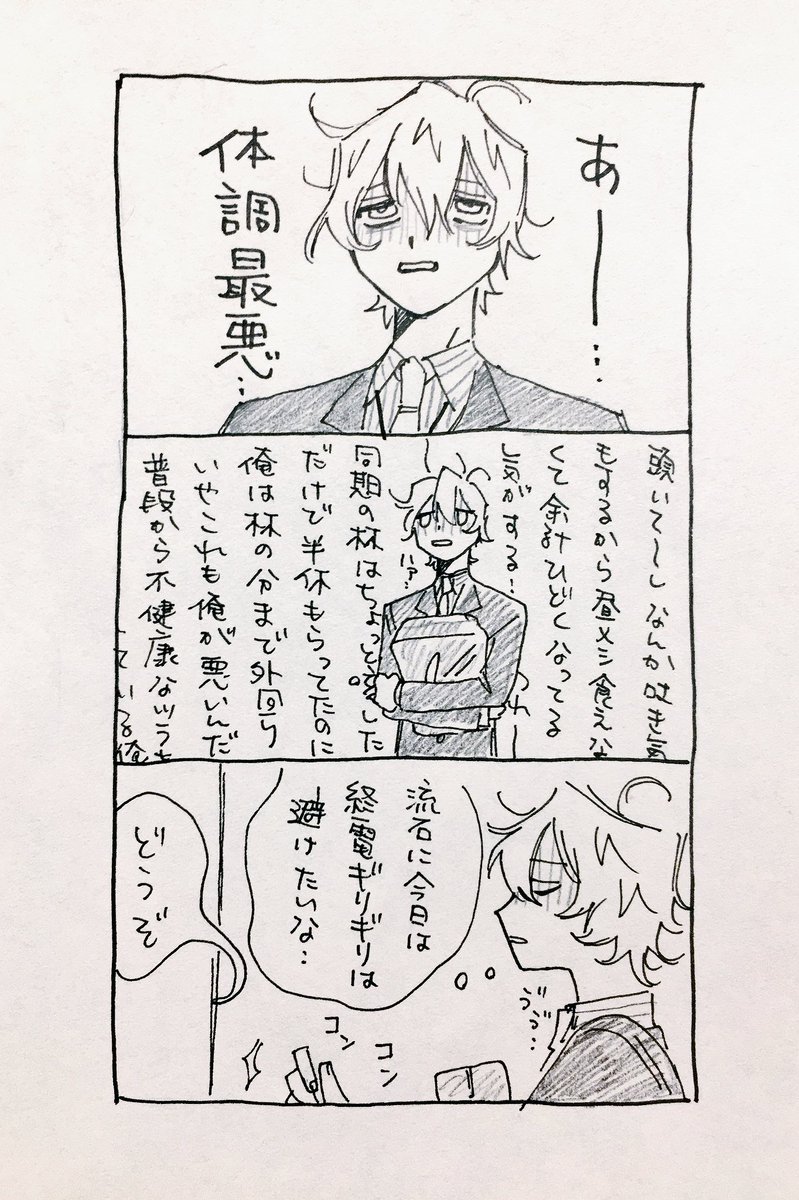 あーー…
体調最悪…
頭いて〜しなんか吐き気
もするから昼メシ食えな
くて余計ひどくなってる
気がする…
同期の林はちょっと咳した
だけで半休もらってたのに
俺は林の分まで外回り
いやこれも俺が悪いんだ
普段から不健康な
ている俺
ハァ…
流石に今日は
終電ギリギリは
避けたいな…
ゔゔ…
コン
コン
どうぞ